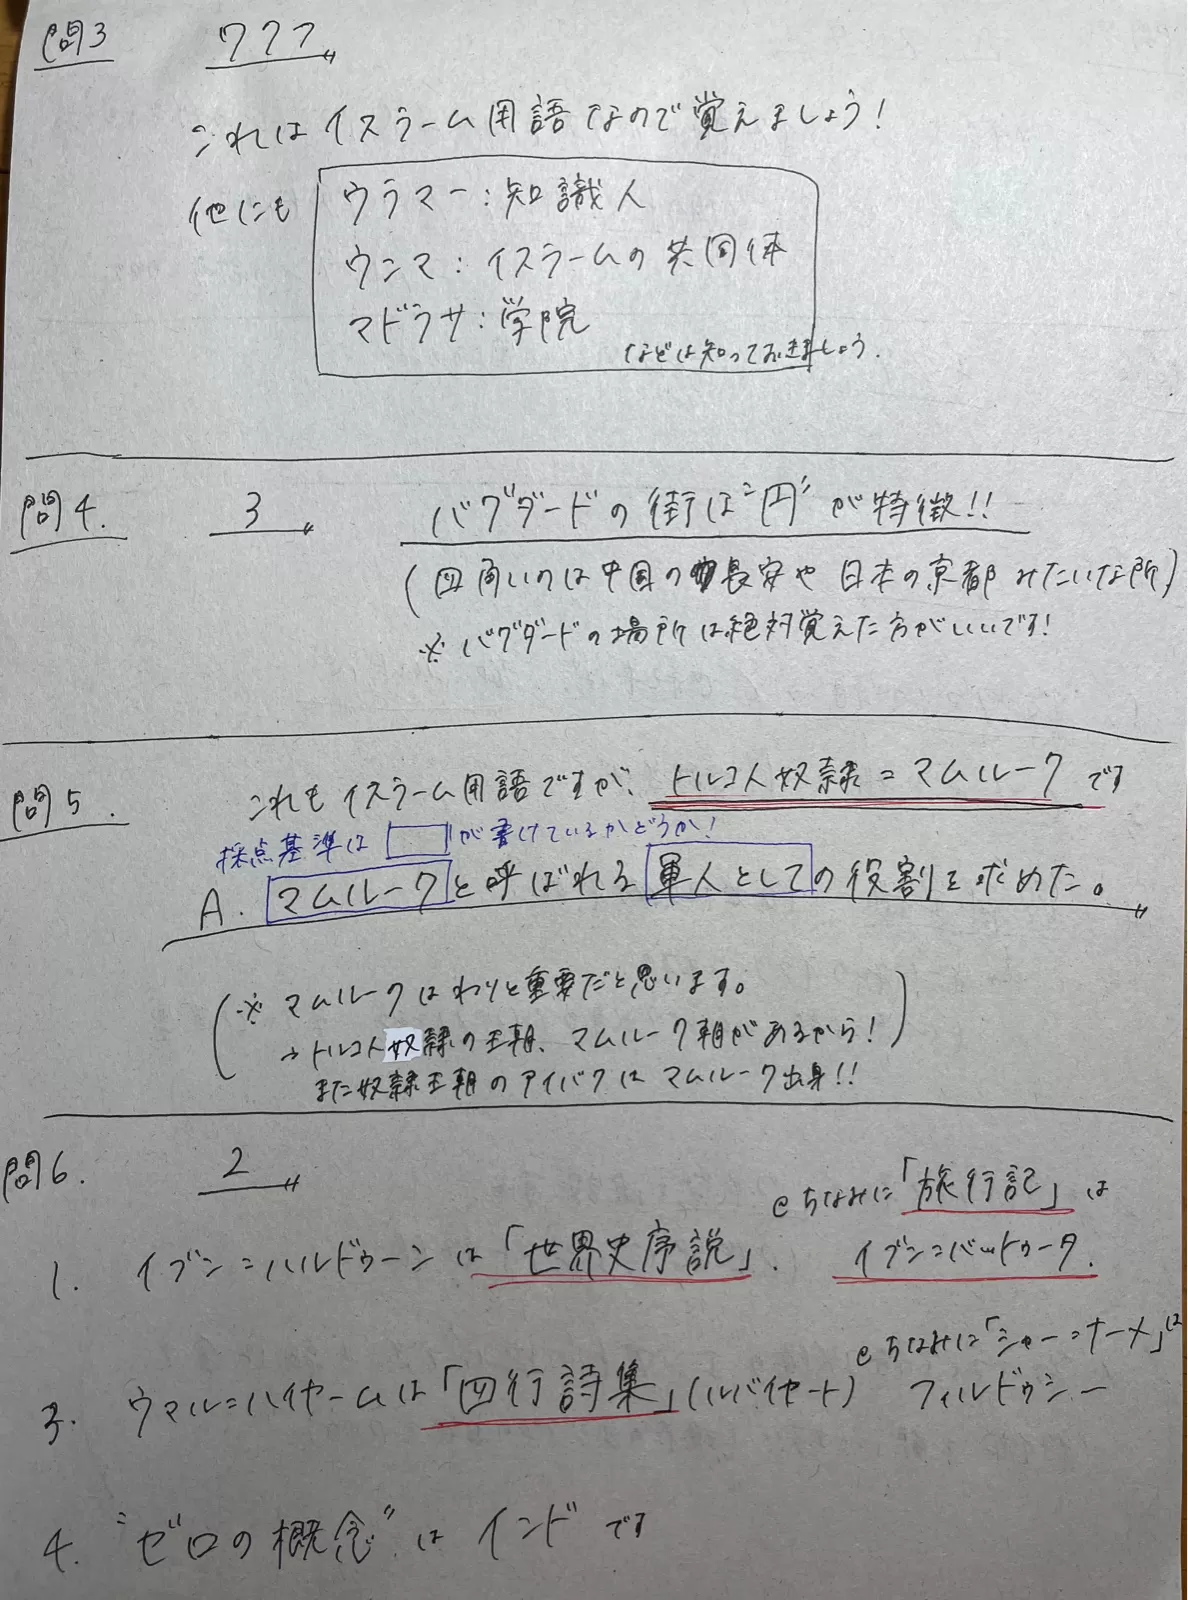 問3 ワクフ
これはイスラーム用語なので覚えましょう!
他にも ウラマー:知識人
ウンマ:イスラームの共同体
マドラサ:学院
などは知っておきましょう.
問4. 3 バグダードの街は"円"が特徴!!
(四角いのは中国の長安や日本の京都みたいな所)
※バグダードの場所は絶対覚えた方がいいです!
問5. これもイスラーム用語ですが、トルコ人奴隷=マムルークです
採点基準は□が書けているかどうか!
A. マムルークと呼ばれる軍人としての役割を求めた。
(※マムルークはわりと重要だと思います。
→トルコ人奴隷の王朝、マムルーク朝があるから!)
また奴隷王朝のアイバクはマムルーク出身!!
問6. 2
@ちなみに「旅行記」は
1. イブン=ハルドゥーンは「世界史序説」. イブン=バットゥータ.
@ちなみに「シャー=ナーメ」は
3. ウマル=ハイヤームは「四行詩集」(ルバイヤート) フィルドゥシー
4. "ゼロの概念"はインドです